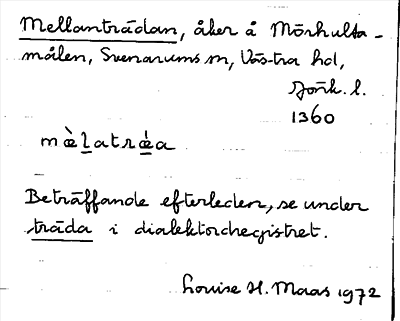 Mellanträdan, åker å Mörhulta-
målen, Svenarums sn, Västra hd,
Jönk. l.
1360
mὲlatrǽa
Beträffande efterleden, se under
träda i dialektordregistret.
Louise H. Maas 1972